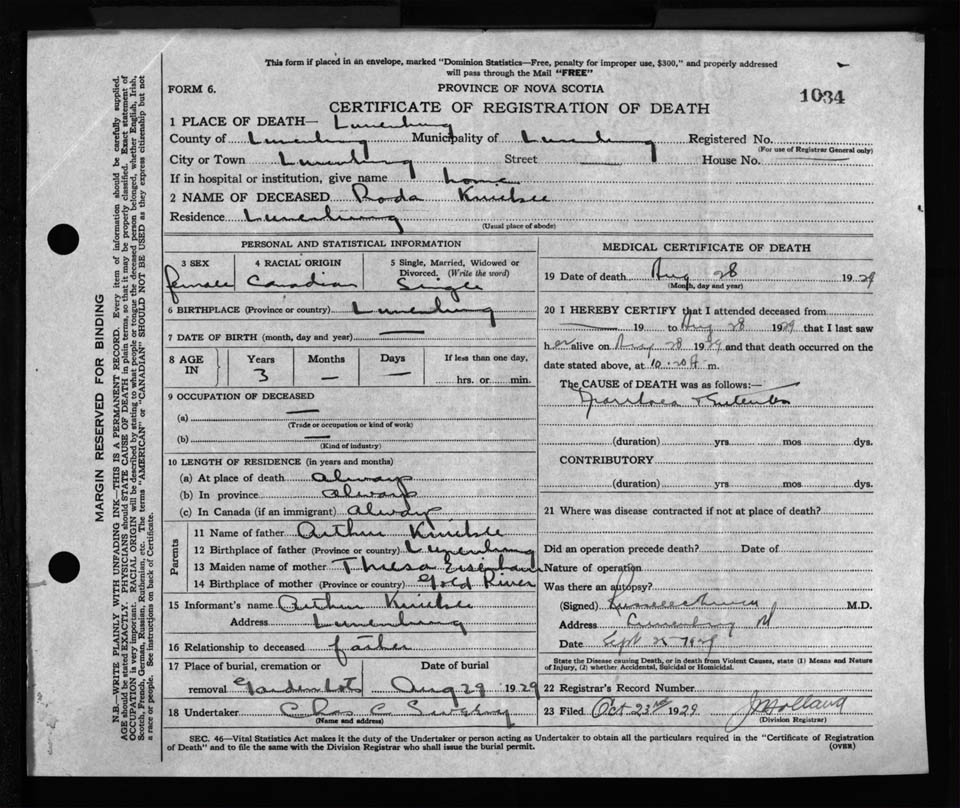 This form if placed in an envelope, marked "Dominion Statistics—Free, penalty for improper use, $300," and properly addressed
will pass through the Mail "FREE"
FORM 6.
PROVINCE OF NOVA SCOTIA
1034
CERTIFICATE OF REGISTRATION OF DEATH
1 PLACE OF DEATH— Lunenburg
County of Lunenburg Municipality of Lunenburg Registered No.
(For use of Registrar General only)
City or Town Lunenburg Street House No.
If in hospital or institution, give name home
2 NAME OF DECEASED Roda
Residence Lunenburg
(Usual place of abode)
PERSONAL AND STATISTICAL INFORMATION
3 SEX 4 RACIAL ORIGIN 5 Single, Married, Widowed or
Divorced. (Write the word)
female Canadian Single
6 BIRTHPLACE (Province or country) Lunenburg
7 DATE OF BIRTH (month, day and year) —
8 AGE IN Years Months Days If less than one day,
3 — — hrs. or min.
9 OCCUPATION OF DECEASED
(a) —
(Trade or occupation or kind of work)
(b) —
(Kind of industry)
10 LENGTH OF RESIDENCE (in years and months)
(a) At place of death always
(b) In province always
(c) In Canada (if an immigrant) always
Parents
11 Name of father Arthur
12 Birthplace of father (Province or country) Lunenburg
13 Maiden name of mother
14 Birthplace of mother (Province or country) Gold River
15 Informant's name Arthur
Address Lunenburg
16 Relationship to deceased father
17 Place of burial, cremation or Date of burial
removal Garden Lots Aug 29 1929
18 Undertaker Chas C
(Name and address)
MEDICAL CERTIFICATE OF DEATH
19 Date of death Aug 28 1929
(Month, day and year)
20 I HEREBY CERTIFY that I attended deceased from
— 19 to Aug 28 1929 that I last saw
her alive on Aug 28 1929 and that death occurred on the
date stated above, at 10.20 m.
The CAUSE of DEATH was as follows:—
Diarrhoea
(duration) yrs mos dys.
CONTRIBUTORY
(duration) yrs mos dys.
21 Where was disease contracted if not at place of death?
Did an operation precede death? Date of
Nature of operation
Was there an autopsy?
(Signed) M.D.
Address Lunenburg
Date Sept 25 1929
State the Disease causing Death, or in death from Violent Causes, state (1) Means and Nature
of Injury, (2) whether Accidental, Suicidal or Homicidal.
22 Registrar's Record Number
23 Filed Oct 23rd 1929
(Division Registrar)
SEC. 46—Vital Statistics Act makes it the duty of the Undertaker or person acting as Undertaker to obtain all the particulars required in the "Certificate of Registration
of Death" and to file the same with the Division Registrar who shall issue the burial permit.
(OVER)
MARGIN RESERVED FOR BINDING
N.B.—WRITE PLAINLY WITH UNFADING INK—THIS IS A PERMANENT RECORD. Every item of information should be carefully supplied.
AGE should be stated EXACTLY. PHYSICIANS should STATE CAUSE OF DEATH in plain terms, so that it may be properly classified. Exact statement of
OCCUPATION is very important. RACIAL ORIGIN will be described by stating to what people or tongue the deceased person belonged, whether English, Irish,
Scotch, French, German, Russian, Ruthenian, etc. The terms "AMERICAN" or "CANADIAN" SHOULD NOT BE USED as they express citizenship but not
a race or people. See instructions on back of Certificate.